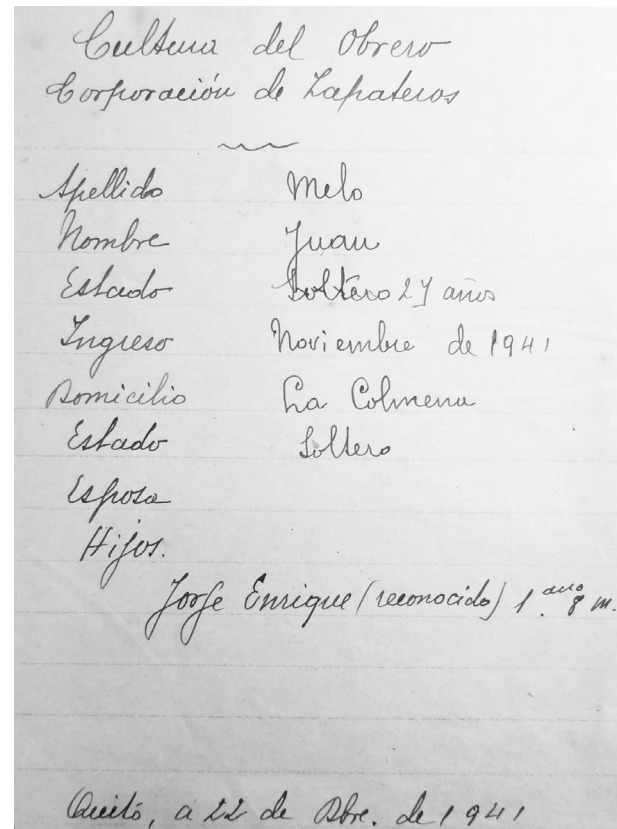 Cultura del Obrero
Corporación de Zapateros
Apellido Melo
Nombre Juan
Estado Soltero 27 años
Ingreso Noviembre de 1941
Domicilio La Colmena
Estado Soltero
Esposa
Hijos.
Jorge Enrique (reconocido) 1 año 8 m.
Quito, a 22 de Dbre. de 1941